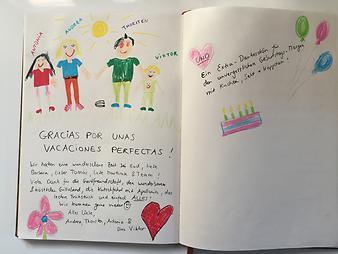 ANTONIA
ANDREA
THORSTEN
VIKTOR
GRACIAS POR UNAS
VACACIONES PERFECTAS!
Wir hatten eine wunderschöne Zeit bei Euch, liebe
Barbara, lieber Tomás, liebe Martina & Team!
Vielen Dank für die Gastfreundschaft, den wunderbaren
Geburtstag, die Kutschfahrt mit, das
leckere Frühstück und einfach ALLES!
Wir kommen gerne wieder
Alles Liebe,
Andrea, Thorsten, Antonia &
Viktor
UND
Ein Extra-Dankeschön für
den unvergesslichen Geburtstags-Morgen
mit Kuchen, Sekt & Happiness!